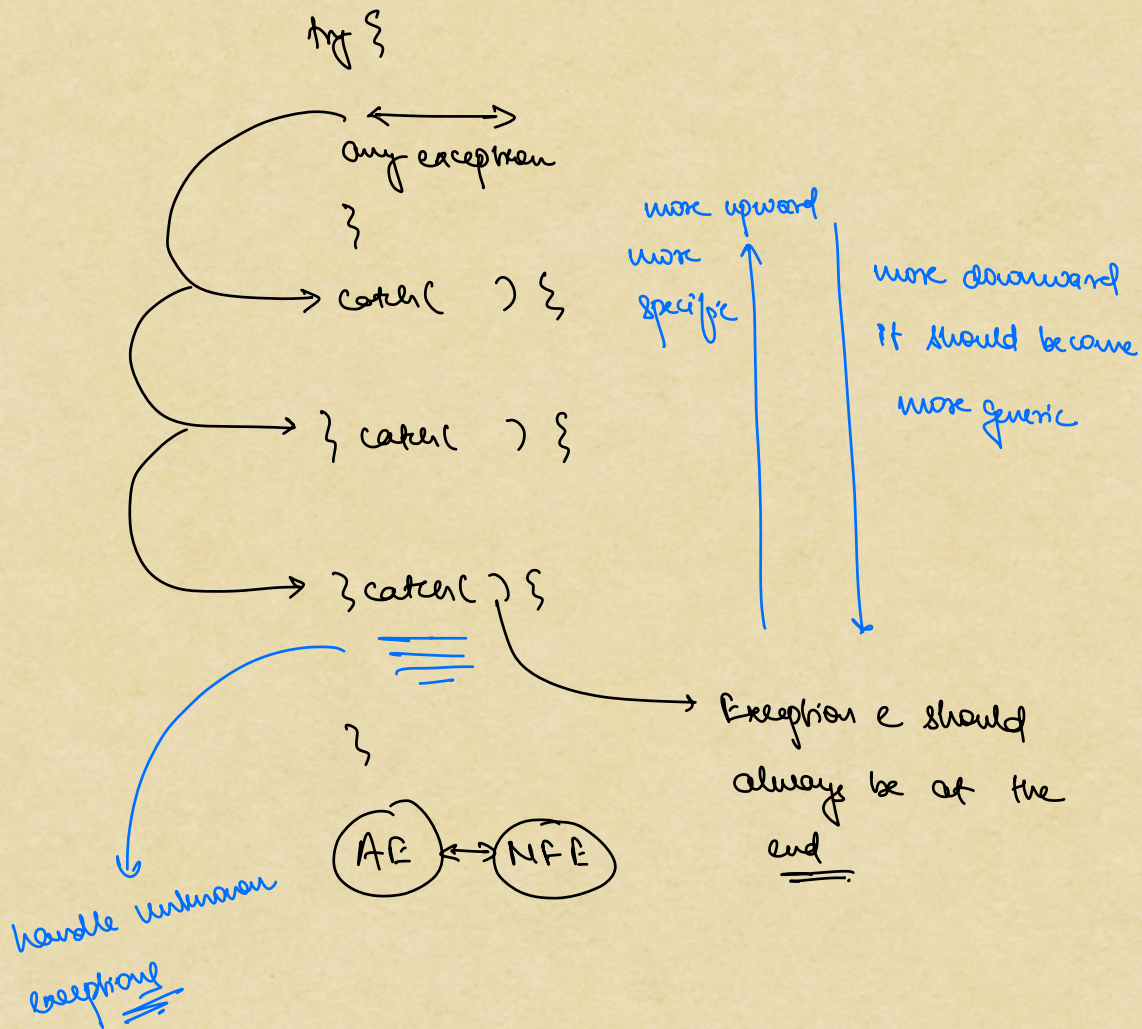 try {
any exception
}
catch( ) {
} catch( ) {
} catch( ) {
}
more upward
more
specific
more downward
it should become
more generic
Exception e should
always be at the
end
AE
NFE
handle unknown
exceptions